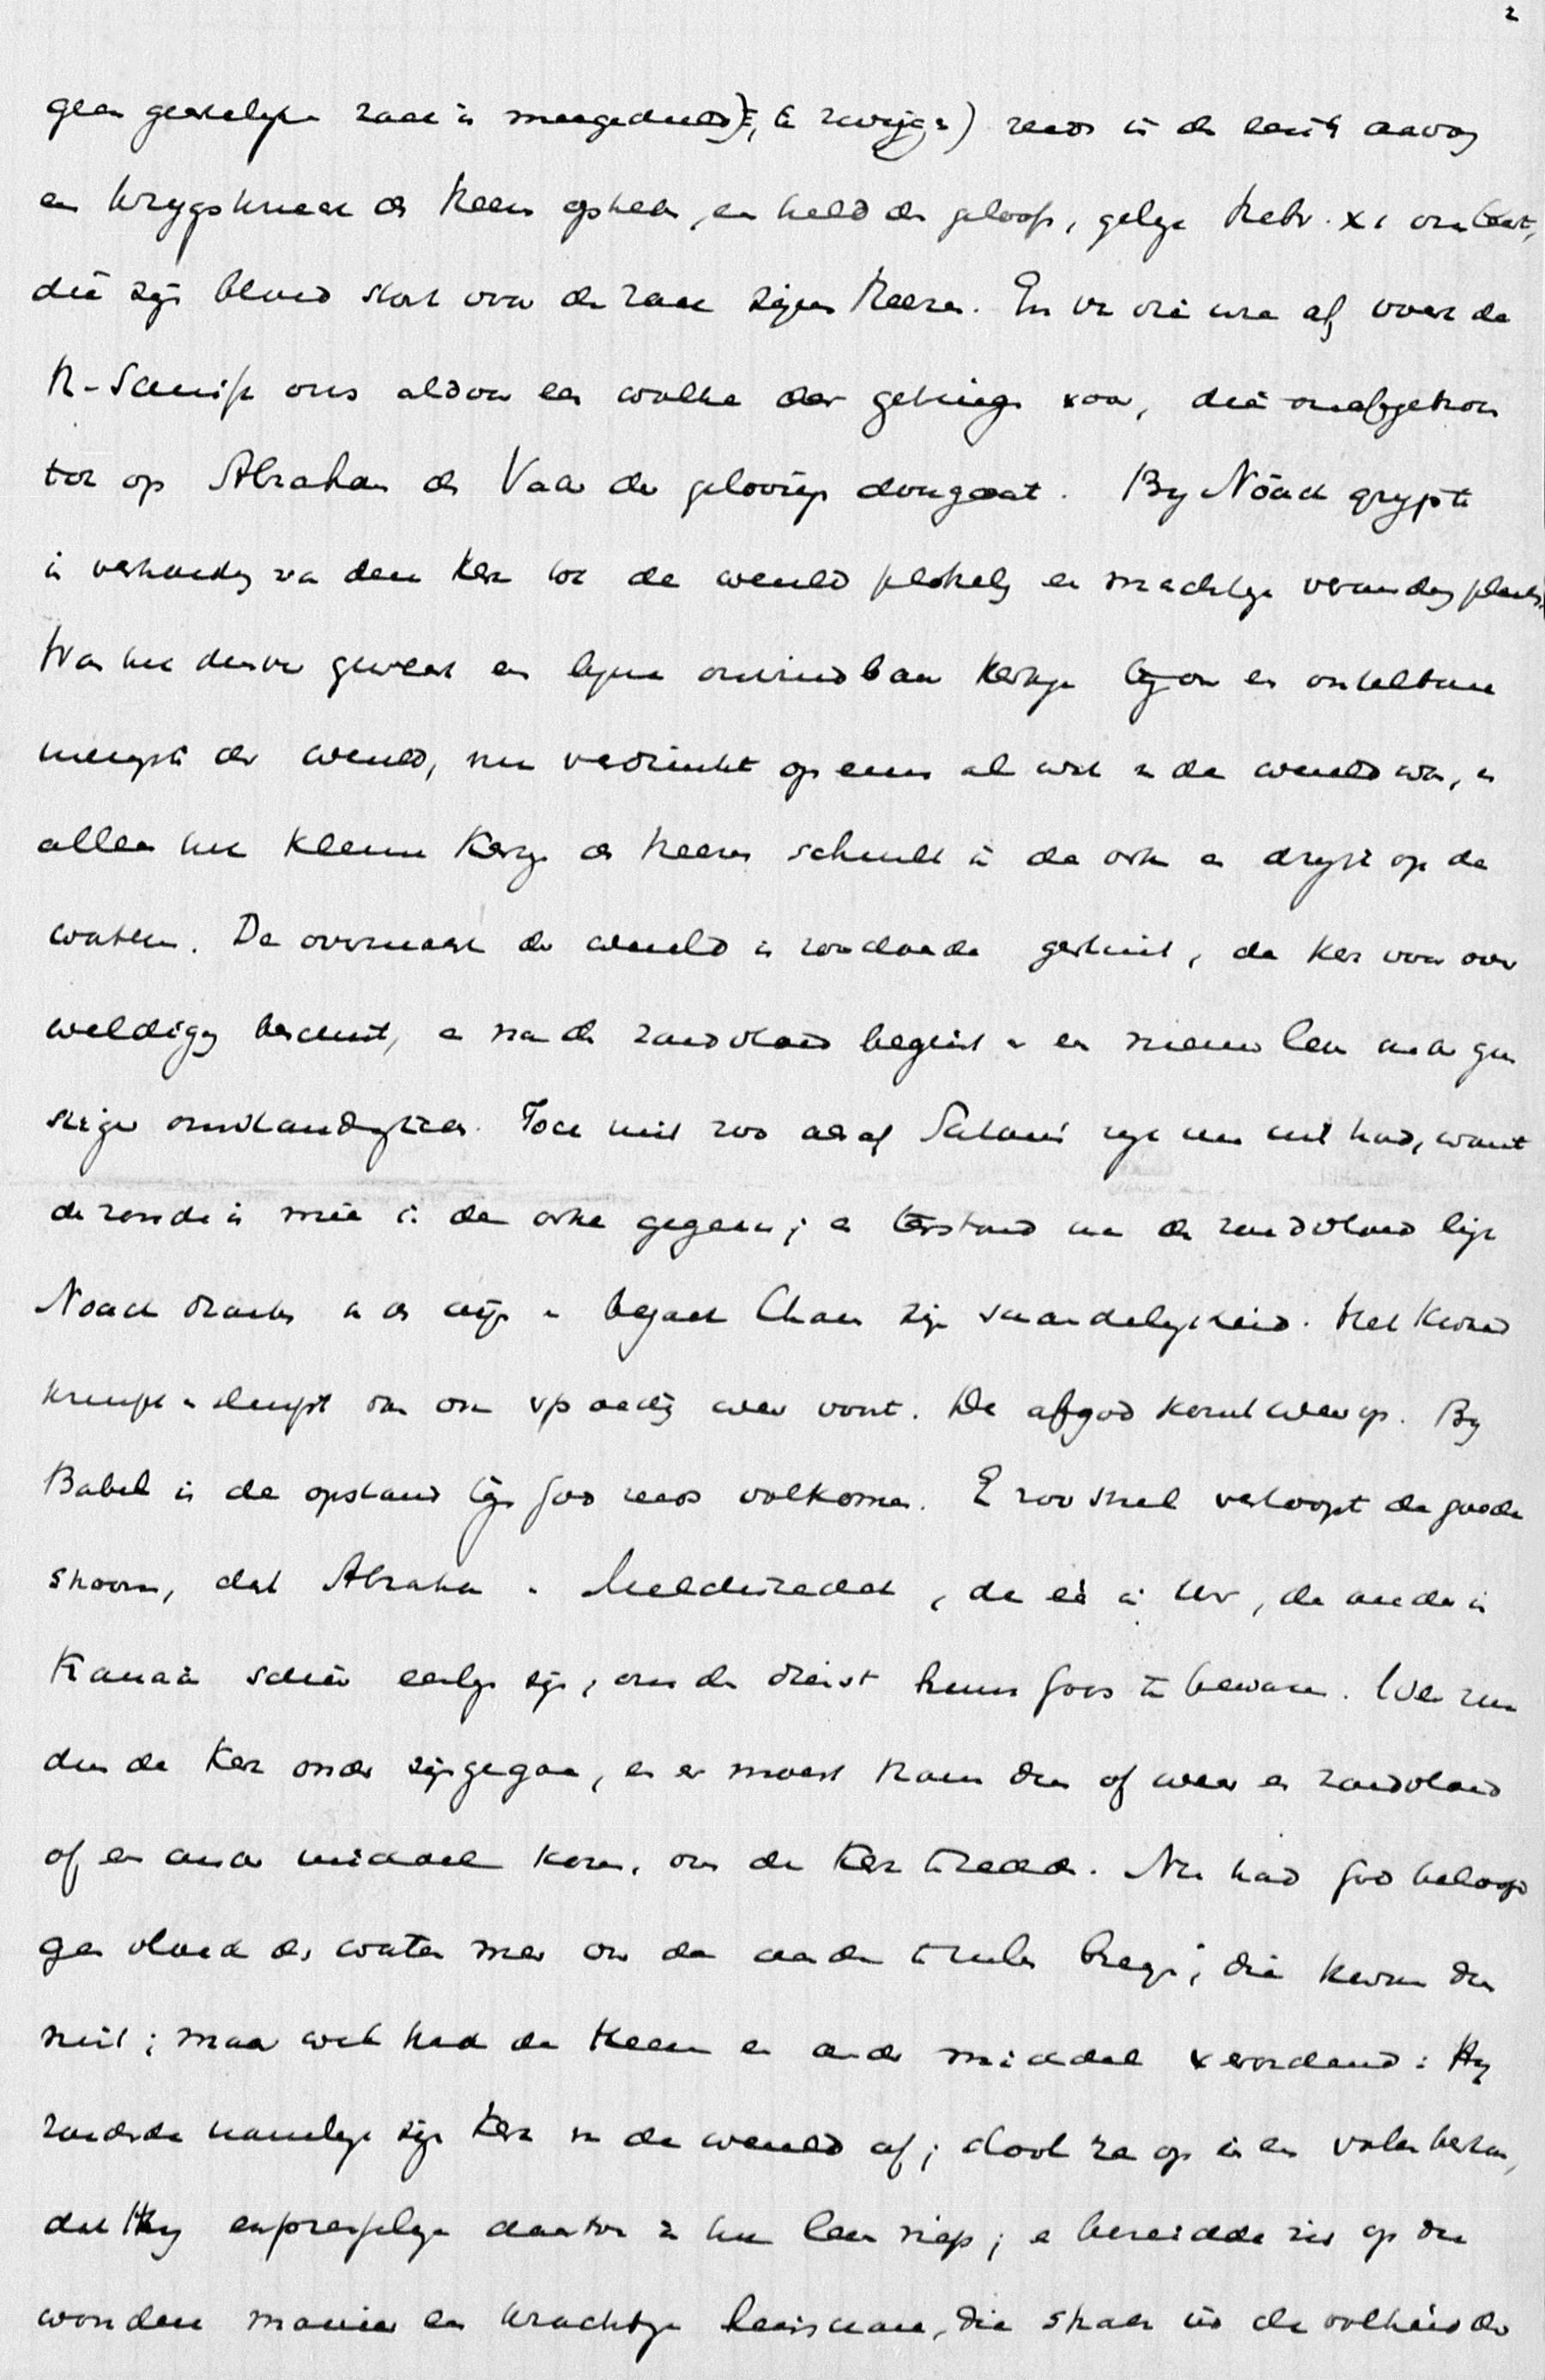 2
geen geestelyke zaak is meegedeeld), te zwijgen) reeds in de eerste aanvang
een krygsknecht des Heeren opstaan, een held des geloofs, gelyk Hebr. XI ons leert,
die zyn bloed stort voor de zaak zijns Heeren. En van die ure af voert de
H-Schrift ons aldoor een wolke der getuigen voor, die onafgebroken
tot op Abraham de Vader der geloovigen doorgaat. By Noach grypt
in verhouding van deze Kerk tot de wereld plotseling een machtige verandering plaats.
Was het dusver geweest een byna onvindbaar Kerkje tegenover een ontelbare
menigte der wereld, nu verdrinkt op eens al wat in de wereld was, en
alleen het kleine Kerkje des Heeren schuilt in de ark en dryft op de
wateren. De overmacht der wereld is zoodoende gestuit, de Kerk voor over
weldiging bescherмd, en na de zondvloed begint er een nieuw leven onder gun
stiger omstandigheden. Toch niet zoo alsof Satan's ryk nu uit had, want
de zonde is mee in de arke gegaan; en terstond na de zondvloed ligt
Noach dronken van de wijn en begaat Cham zijn schandelykheid. Het kwaad
kruipt en sluipt dan ook spoedig weer voort. De afgod komt weer op. By
Babel is de opstand tegen God reeds volkomen. En zoo snel verloopt de goede
stroom, dat Abraham en Melchizedek, de een in Ur, de ander in
Kanaän schier eenige zijn, om de dienst huns Gods te bewaren. Weer zou
dus de Kerk onder zijn gegaan, en er moest kans dus of weer een zondvloed
of een ander middel komen, om de Kerk te redden. Nu had God beloofd
geen vloed der wateren meer over de aarde te zullen brengen; die kwam dus
niet; maar wel had de Heere een ander middel verordend: Hy
zonderde namelyk zijn Kerk van de wereld af; sloot ze op in een volksbestaan,
dat Hy expresselyk daartoe in het leven riep; en bereidde zich op die
wondere manier een krachtige heirschare, die straks in de volheid der